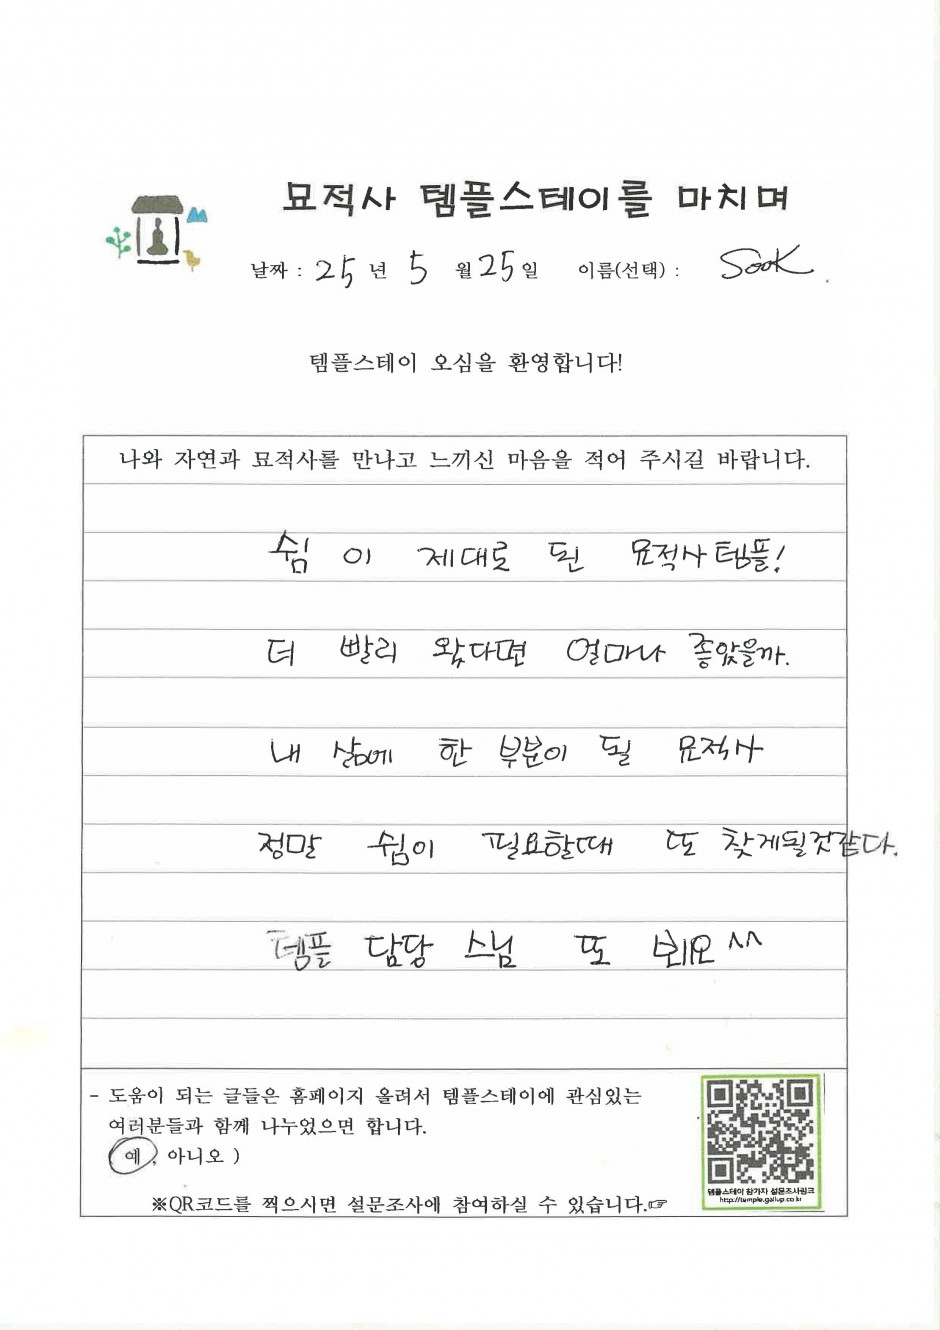 묘적사 템플스테이를 마치며
날짜 : 25 년 5 월 25 일 이름(선택) : Sook
템플스테이 오심을 환영합니다!
나와 자연과 묘적사를 만나고 느끼신 마음을 적어 주시길 바랍니다.
쉼 이 제대로 된 묘적사 템플!
더 빨리 왔다면 얼마나 좋았을까.
내 삶에 한 부분이 될 묘적사
정말 쉼이 필요할때 또 찾게될것같다.
템플 담당 스님 또 뵈요 ^^
- 도움이 되는 글들은 홈페이지 올려서 템플스테이에 관심있는
여러분들과 함께 나누었으면 합니다.
예 , 아니오 )
※QR코드를 찍으시면 설문조사에 참여하실 수 있습니다.☞
템플스테이 참가자 설문조사링크
http://temple.gallup.co.kr